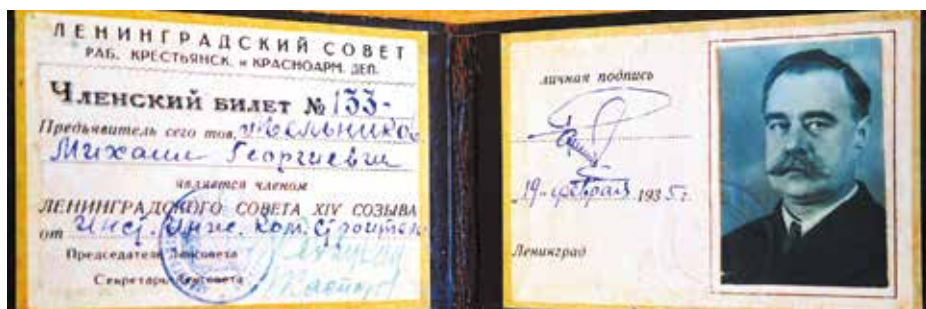 ЛЕНИНГРАДСКИЙ СОВЕТ
РАБ. КРЕСТЬЯНСК. и КРАСНОАРМ. ДЕП.
ЧЛЕНСКИЙ БИЛЕТ № 133-
Предъявитель сего тов.
Михаил Георгиевич
является членом
ЛЕНИНГРАДСКОГО СОВЕТА XIV СОЗЫВА
от Инст. Инж. Ком. Строител
Председатель Ленсовета
Секретарь Ленсовета
личная подпись
19 - февраля 1935 г.
Ленинград